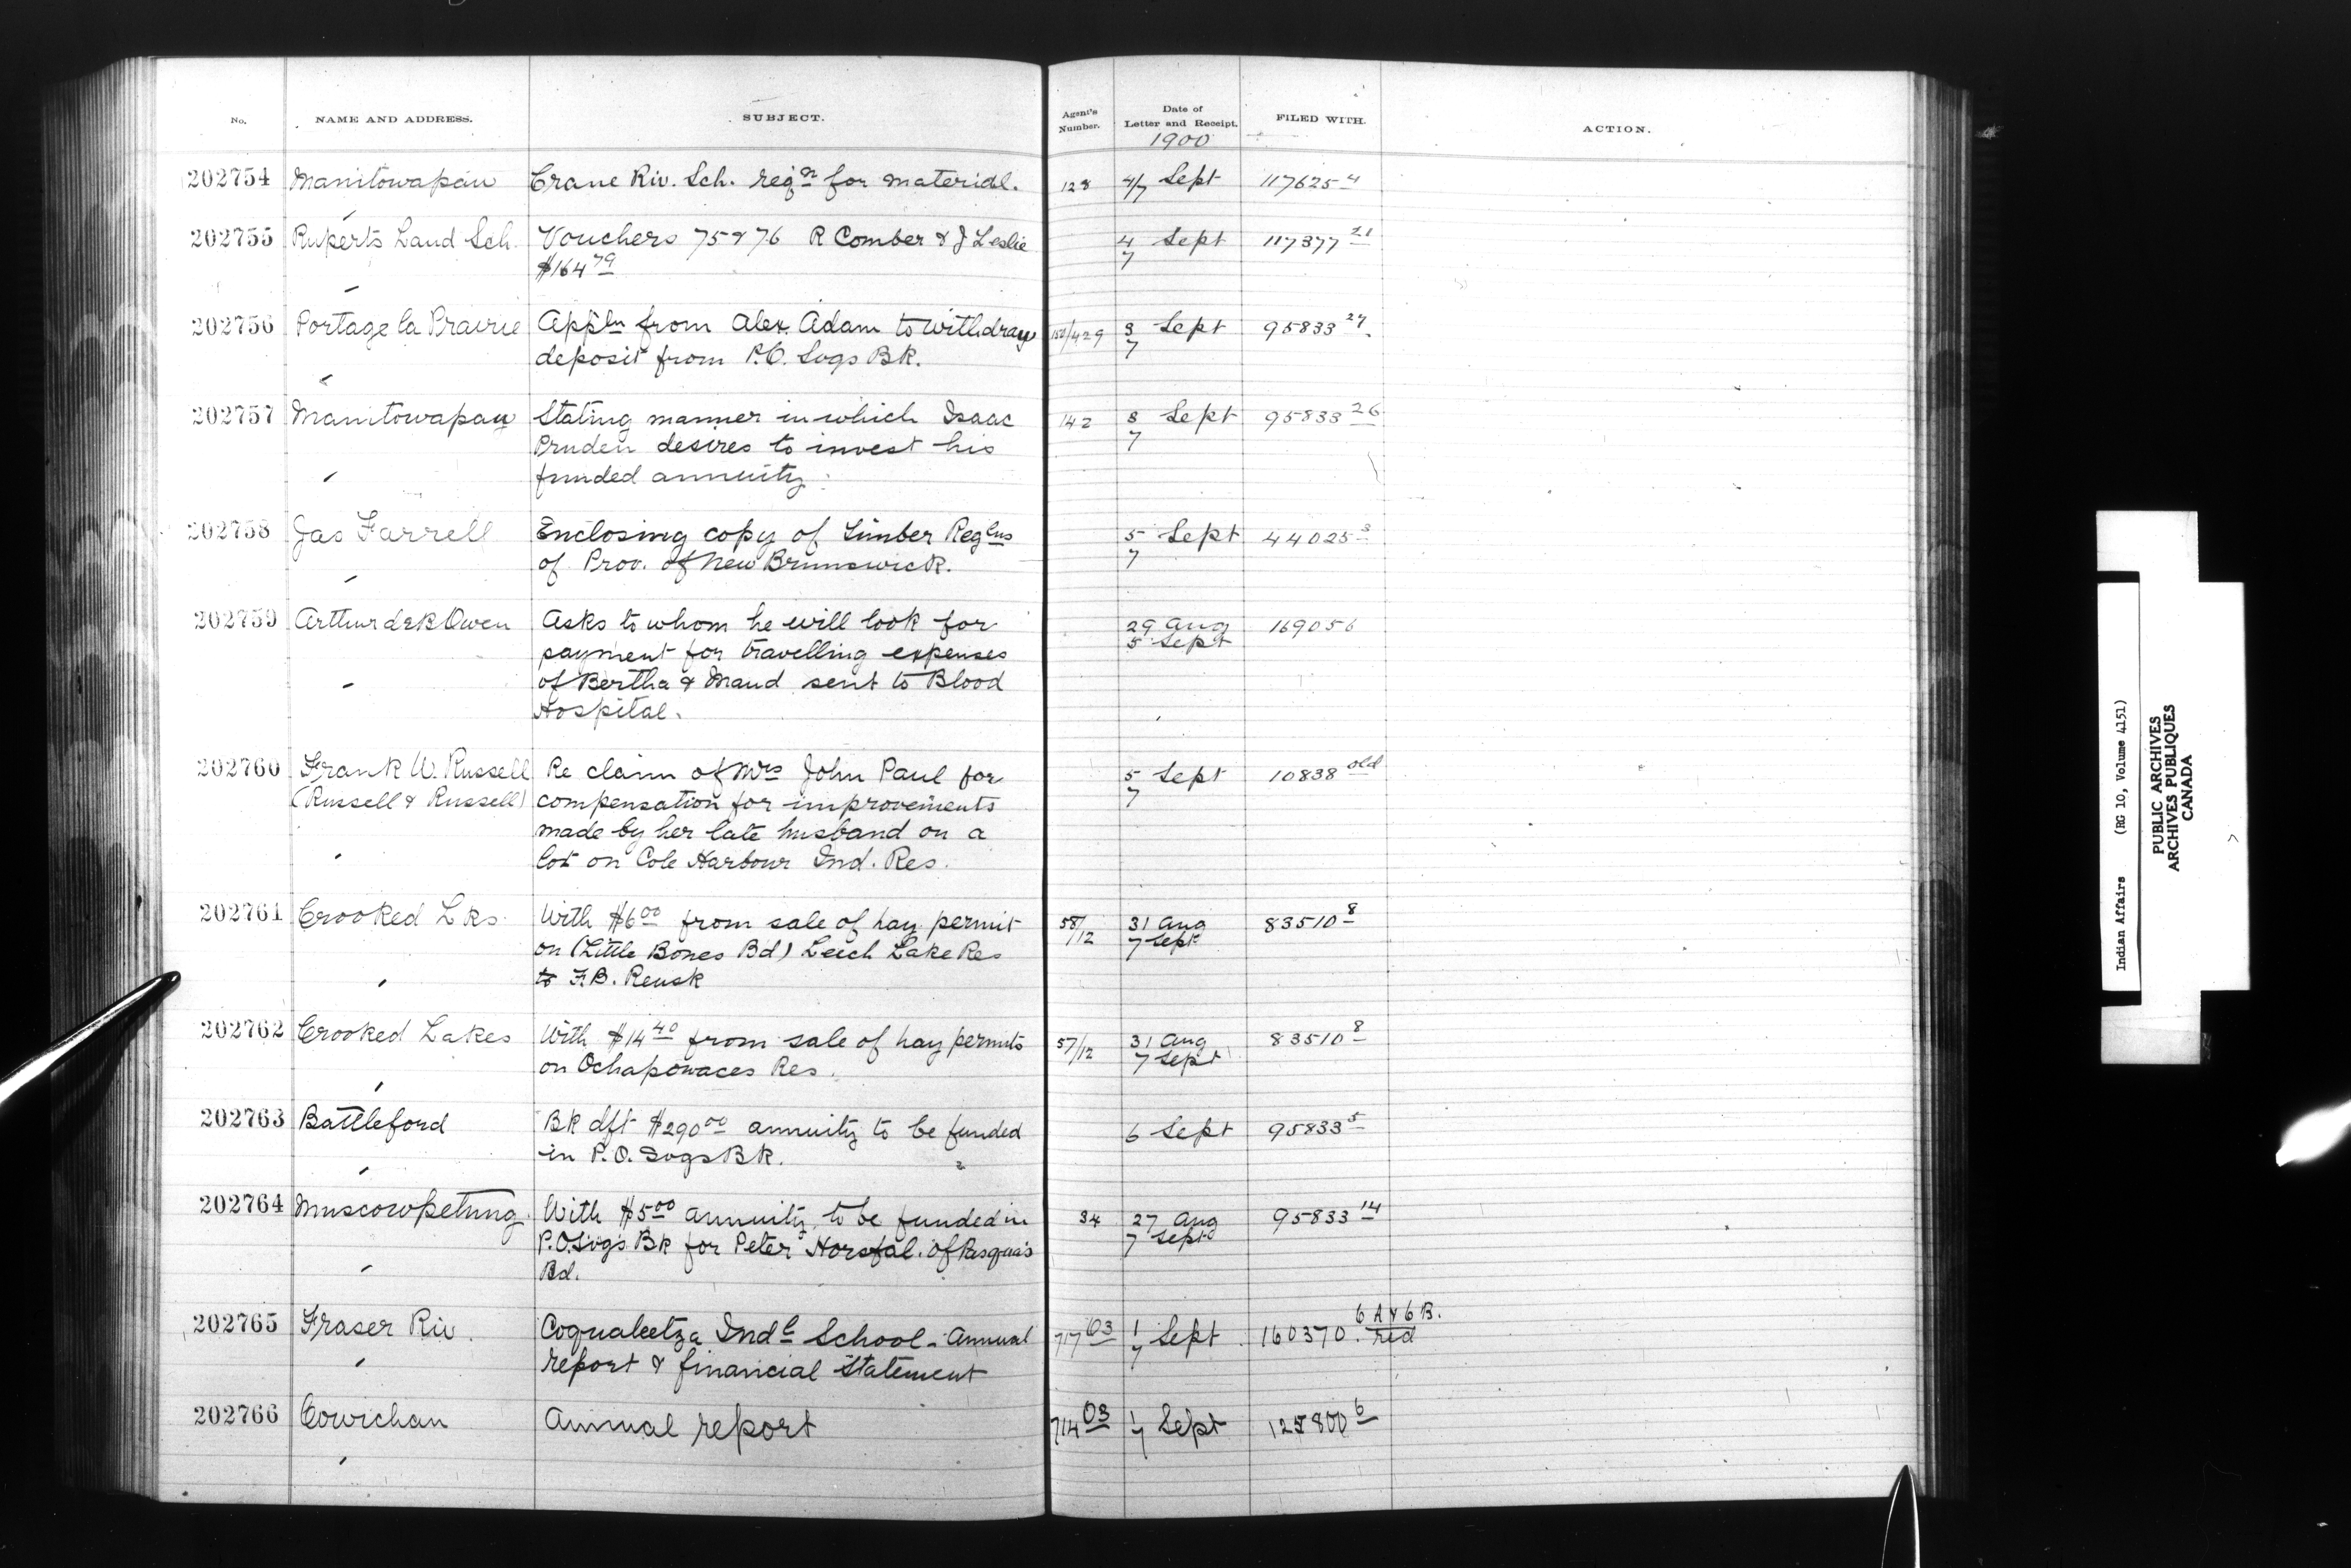 No. NAME AND ADDRESS. SUBJECT. Agent's Number. Date of Letter and Receipt. FILED WITH. ACTION.
1900
202754 Manitowapau Crane Riv. Sch. reqn for material. 128 4/7 Sept 117625 4
202755 Ruperts Land Sch. Vouchers 75 & 76 R Comber & J Leslie 4 Sept 117377 21
$164 79 7
202756 Portage la Prairie Appln from Alex. Adam to withdraw 150/429 3 Sept 95833 27
deposit from P.O. Svgs Bk. 7
202757 Manitowapau Stating manner in which Isaac 142 8 Sept 95833 26
Pruden desires to invest his 7
funded annuity.
202758 Jas Farrell Enclosing copy of Timber Reglns 5 Sept 44025 3
of Prov. of New Brunswick. 7
202759 Arthur de B Owen Asks to whom he will look for 29 Aug 169056
payment for travelling expenses 5 Sept
of Bertha & Maud sent to Blood
Hospital.
202760 Frank W. Russell Re claim of Mrs John Paul for 5 Sept 10838 old
(Russell & Russell) compensation for improvements 7
made by her late husband on a
lot on Cole Harbour Ind. Res.
202761 Crooked Lks. With $6 00 from sale of hay permit 58/12 31 Aug 83510 8
on (Little Bones Bd) Leech Lake Res 7 Sept
to F.B. Reusk
202762 Crooked Lakes With $14 40 from sale of hay permits 57/12 31 Aug 83510 8
on Ochapowaces Res. 7 Sept
202763 Battleford Bk dft $290 00 annuity to be funded 6 Sept 95833 5
in P.O. Svgs Bk.
202764 Muscowpetung. With $5 00 annuity to be funded in 34 27 Aug 95833 14
P.O. Svgs Bk for Peter Horsfal. of Pasqua's 7 Sept
Bd.
6 A & 6 B.
202765 Fraser Riv. Coqualeetza Indl School - Annual 717 03 1 Sept 160370. red
report & financial Statement 7
202766 Cowichan Annual report 714 03 1/7 Sept 125800 6
Indian Affairs (RG 10, Volume 4151)
PUBLIC ARCHIVES
ARCHIVES PUBLIQUES
CANADA